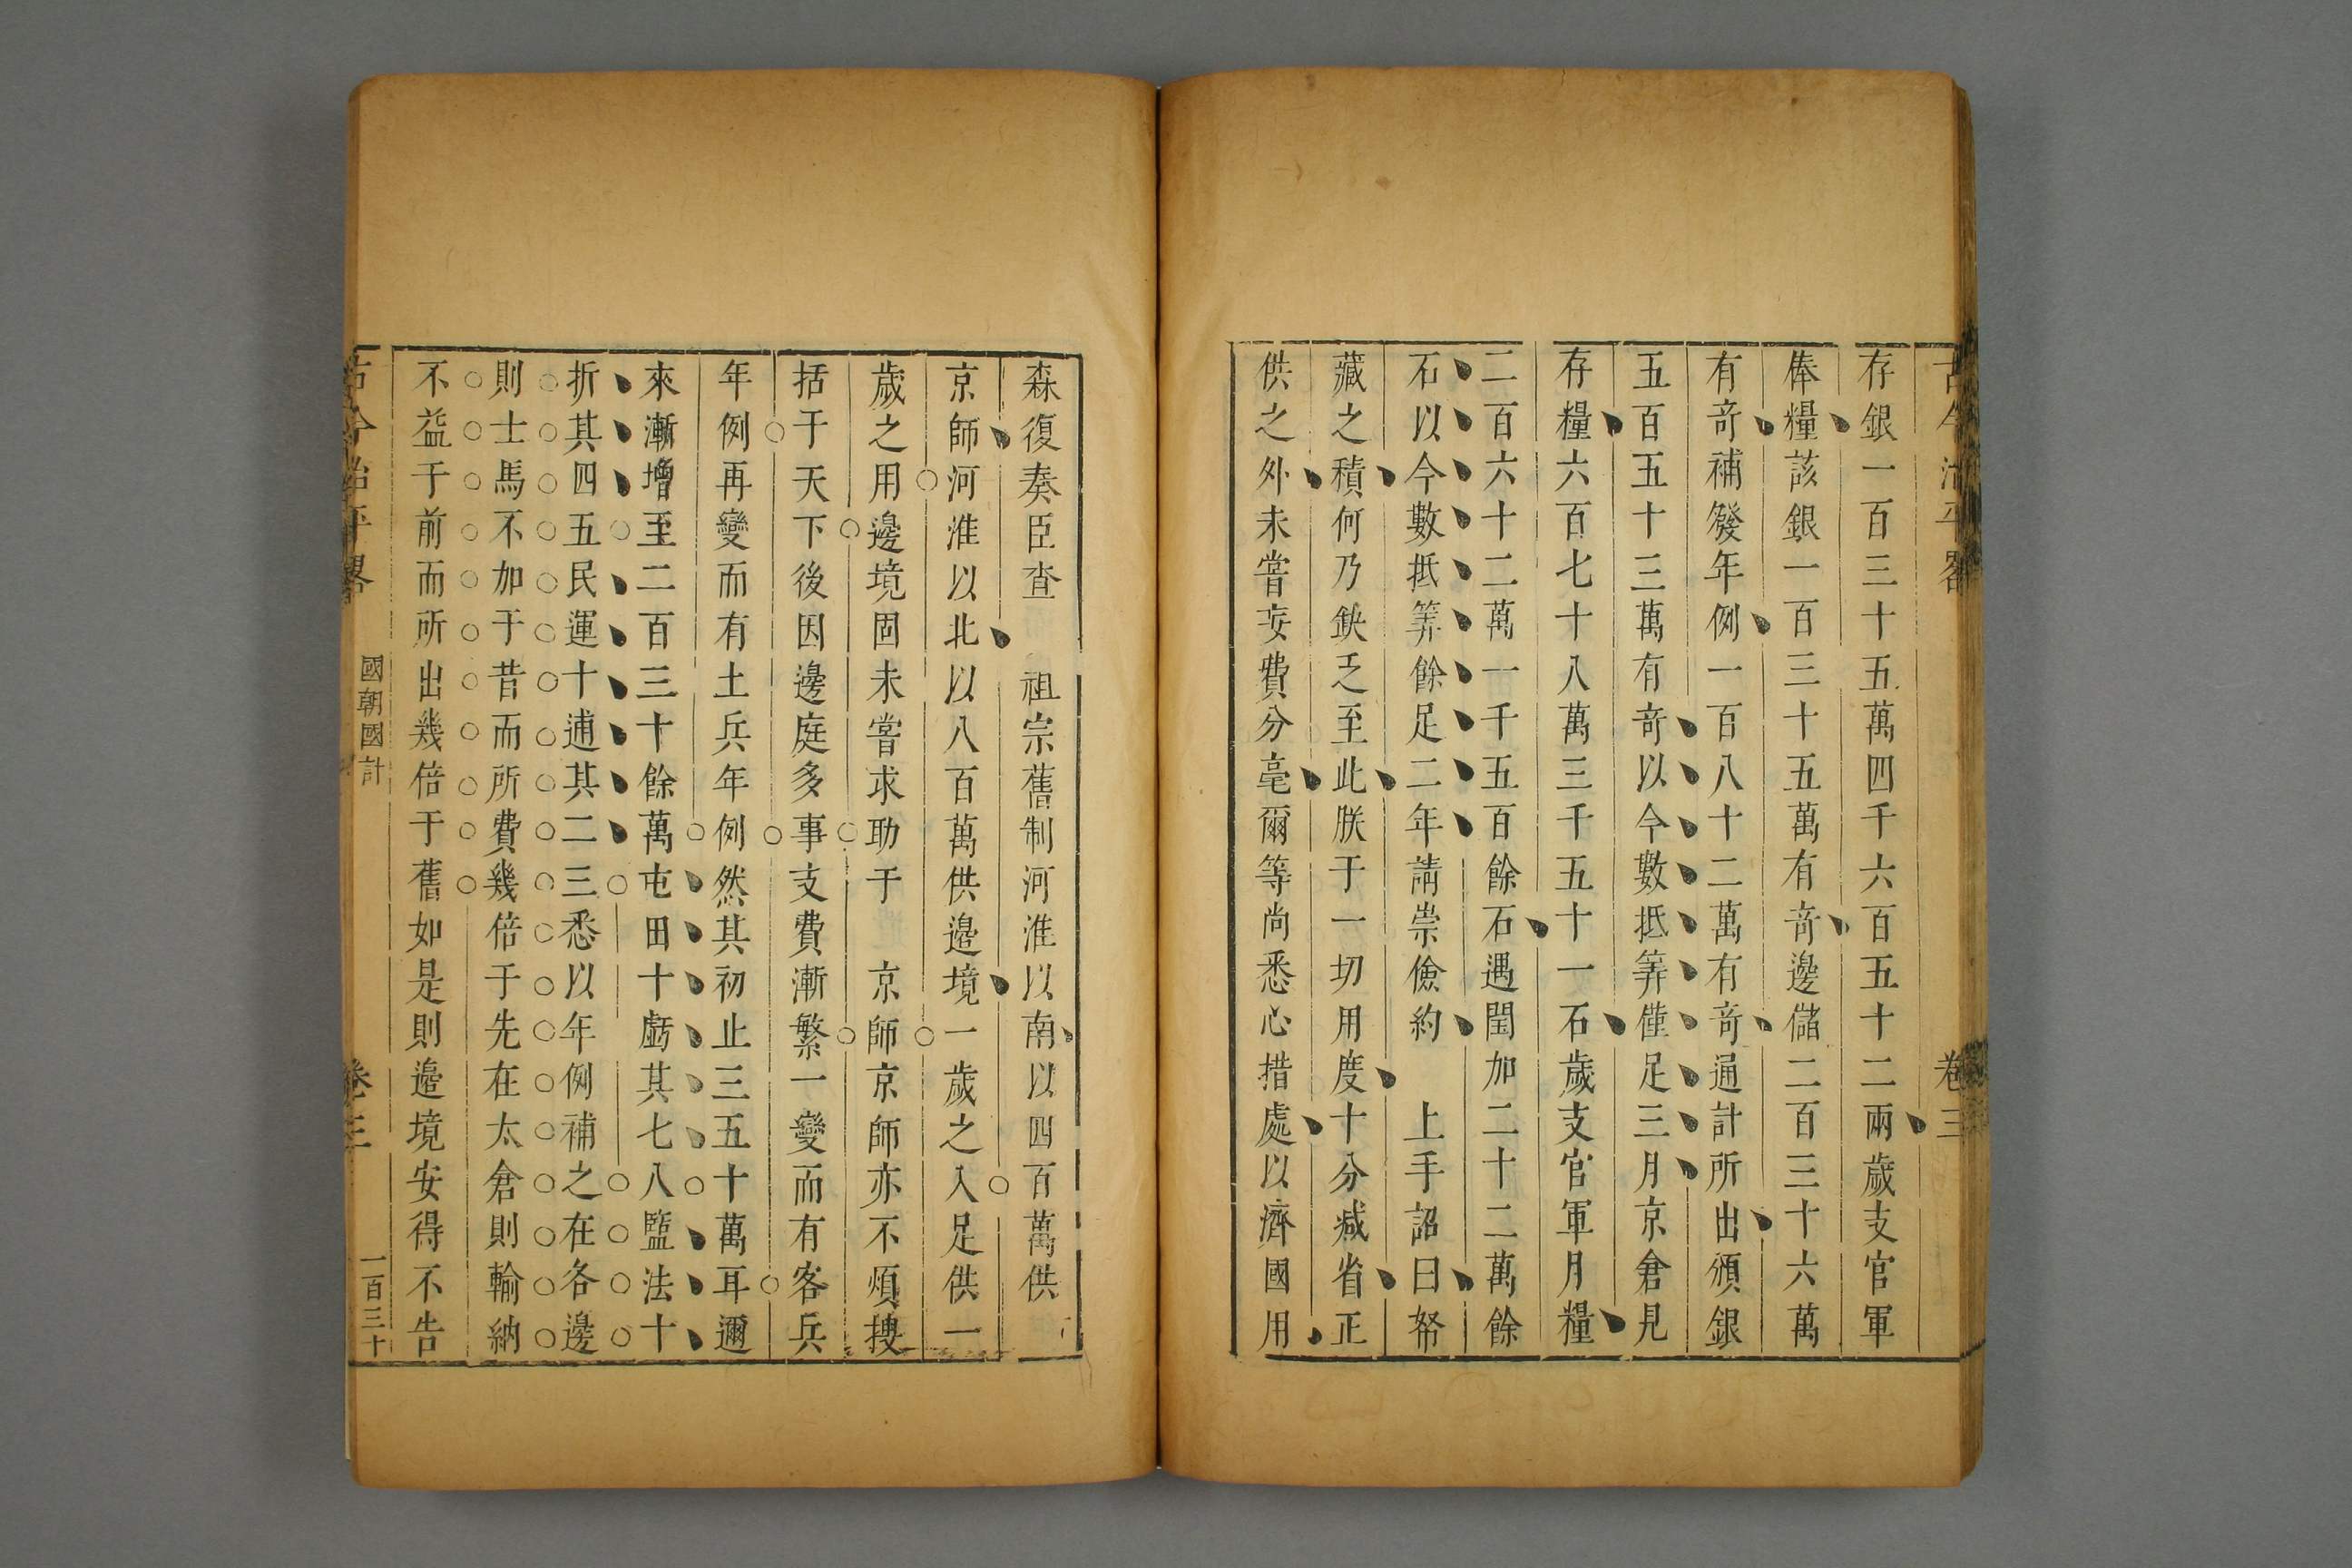 古今治平畧 卷三
存銀一百三十五萬四千六百五十二兩歲支官軍
俸糧該銀一百三十五萬有竒邊儲二百三十六萬
有竒補發年例一百八十二萬有竒通計所出湏銀
五百五十三萬有竒以今數抵筭僅足三月京倉見
存糧六百七十八萬三千五十一石歲支官軍月糧
二百六十二萬一千五百餘石遇閏加二十二萬餘
石以今數抵筭餘足二年請崇儉約 上手詔曰帑
藏之積何乃鈌乏至此朕于一切用度十分减省正
供之外未嘗妄費分毫爾等尚悉心措處以濟國用
森復奏臣查 祖宗舊制河淮以南以四百萬供
京師河淮以北以八百萬供邊境一歲之入足供一
歲之用邊境固未嘗求助于 京師京師亦不煩搜
括于天下後因邊庭多事支費漸繁一變而有客兵
年例再變而有土兵年例然其初止三五十萬耳邇
來漸增至二百三十餘萬屯田十虧其七八鹽法十
折其四五民運十逋其二三悉以年例補之在各邊
則士馬不加于昔而所費幾倍于先在太倉則輸納
不益于前而所出幾倍于舊如是則邊境安得不告
古今治平畧 國朝國計 卷三 一百三十